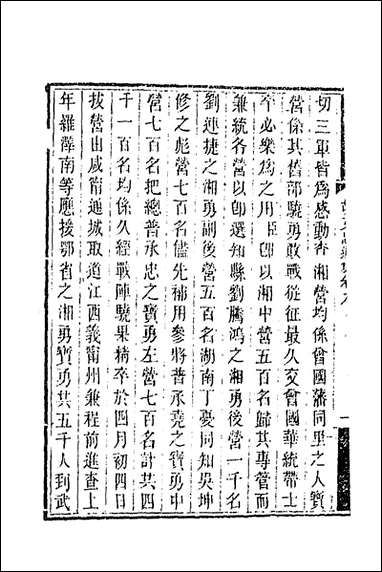 切三軍皆為感動查湘營均係曾國藩同里之人寶
營係其舊部驍勇敢戰從征最久交曾國華統帶士
卒必樂為之用臣卽以湘中營五百名歸其專管而
兼統各營以卽選知縣劉騰鴻之湘勇後營一千名
劉連捷之湘勇副後營五百名湖南丁憂同知吳坤
修之彪營七百名儘先補用參將普承堯之寶勇中
營七百名把總普承忠之寶勇左營七百名計共四
千一百名均係久經戰陣驍果精卒於四月初四日
拔營由咸甯通城取道江西義甯州兼程前進查上
年羅澤南等應援鄂省之湘勇寶勇共五千人到武